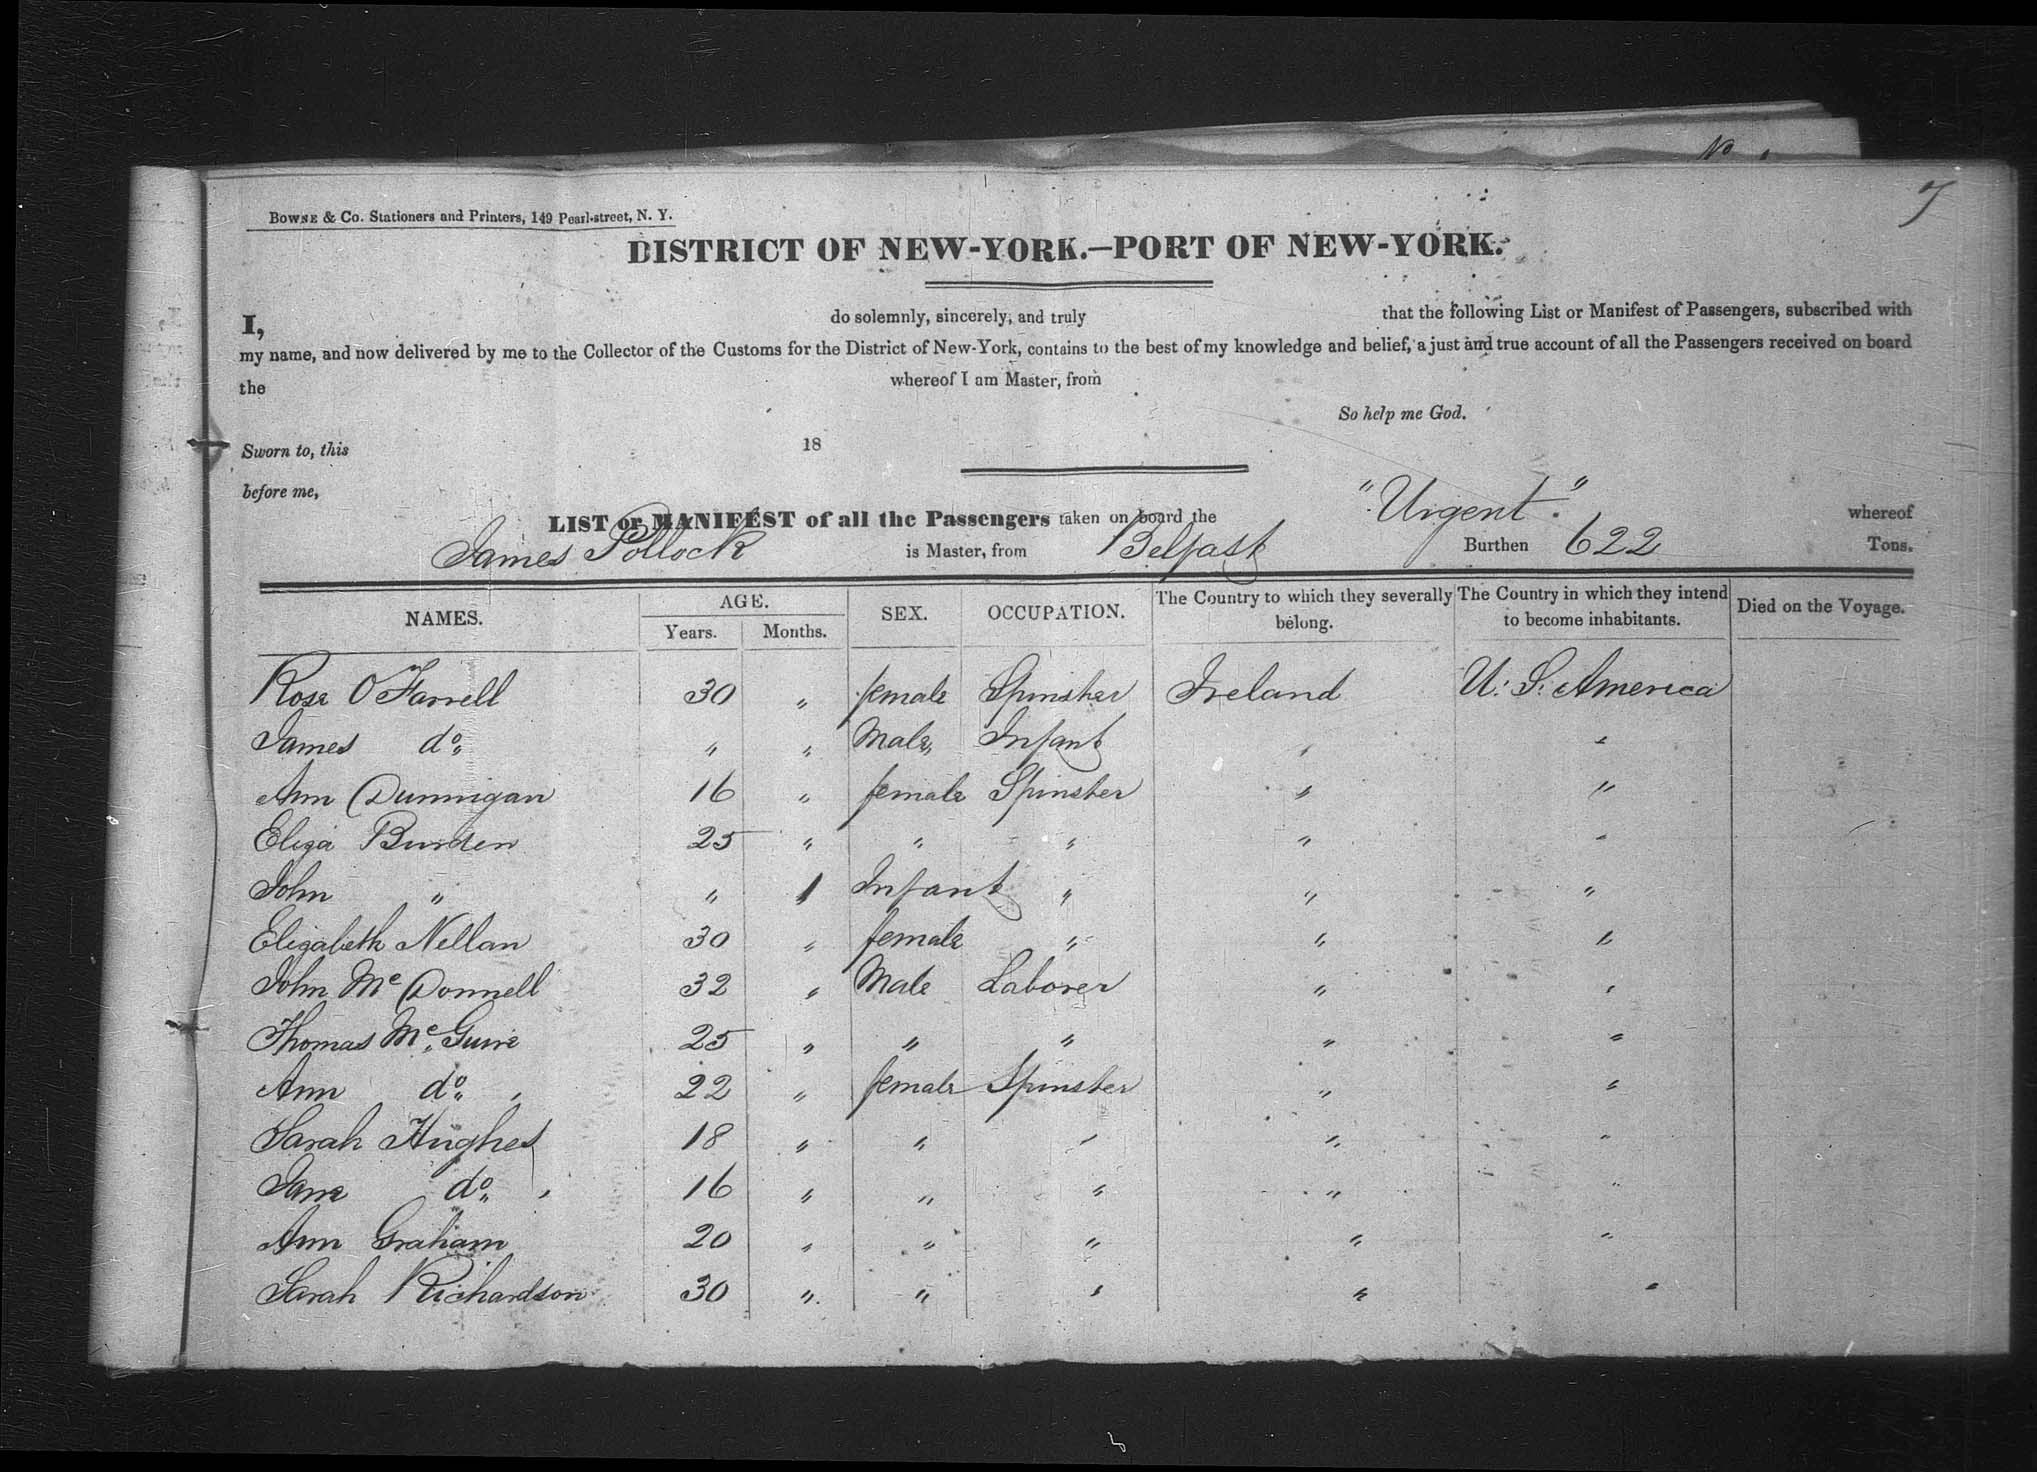 No
7
BOWNE & Co. Stationers and Printers, 149 Pearl-street, N. Y.
DISTRICT OF NEW-YORK.—PORT OF NEW-YORK.
I, do solemnly, sincerely, and truly that the following List or Manifest of Passengers, subscribed with
my name, and now delivered by me to the Collector of the Customs for the District of New-York, contains to the best of my knowledge and belief, a just and true account of all the Passengers received on board
the whereof I am Master, from
So help me God.
Sworn to, this 18
before me,
LIST or MANIFEST of all the Passengers taken on board the "Urgent." whereof
James Pollock is Master, from Belfast Burthen 622 Tons.
NAMES. AGE. SEX. OCCUPATION. The Country to which they severally belong. The Country in which they intend to become inhabitants. Died on the Voyage.
Years. Months.
Rose O'Farrell 30 " female Spinster Ireland U. S. America
James do " " Male Infant " "
Ann Dunnigan 16 " female Spinster " "
Eliza Burden 25 " " " " "
John " " 1 Infant " " "
Elizabeth Nellan 30 " female " " "
John McDonnell 32 " Male Laborer " "
Thomas McGuire 25 " " " " "
Ann do 22 " female Spinster " "
Sarah Hughes 18 " " " " "
Jane do 16 " " " " "
Ann Graham 20 " " " " "
Sarah Richardson 30 " " " " "